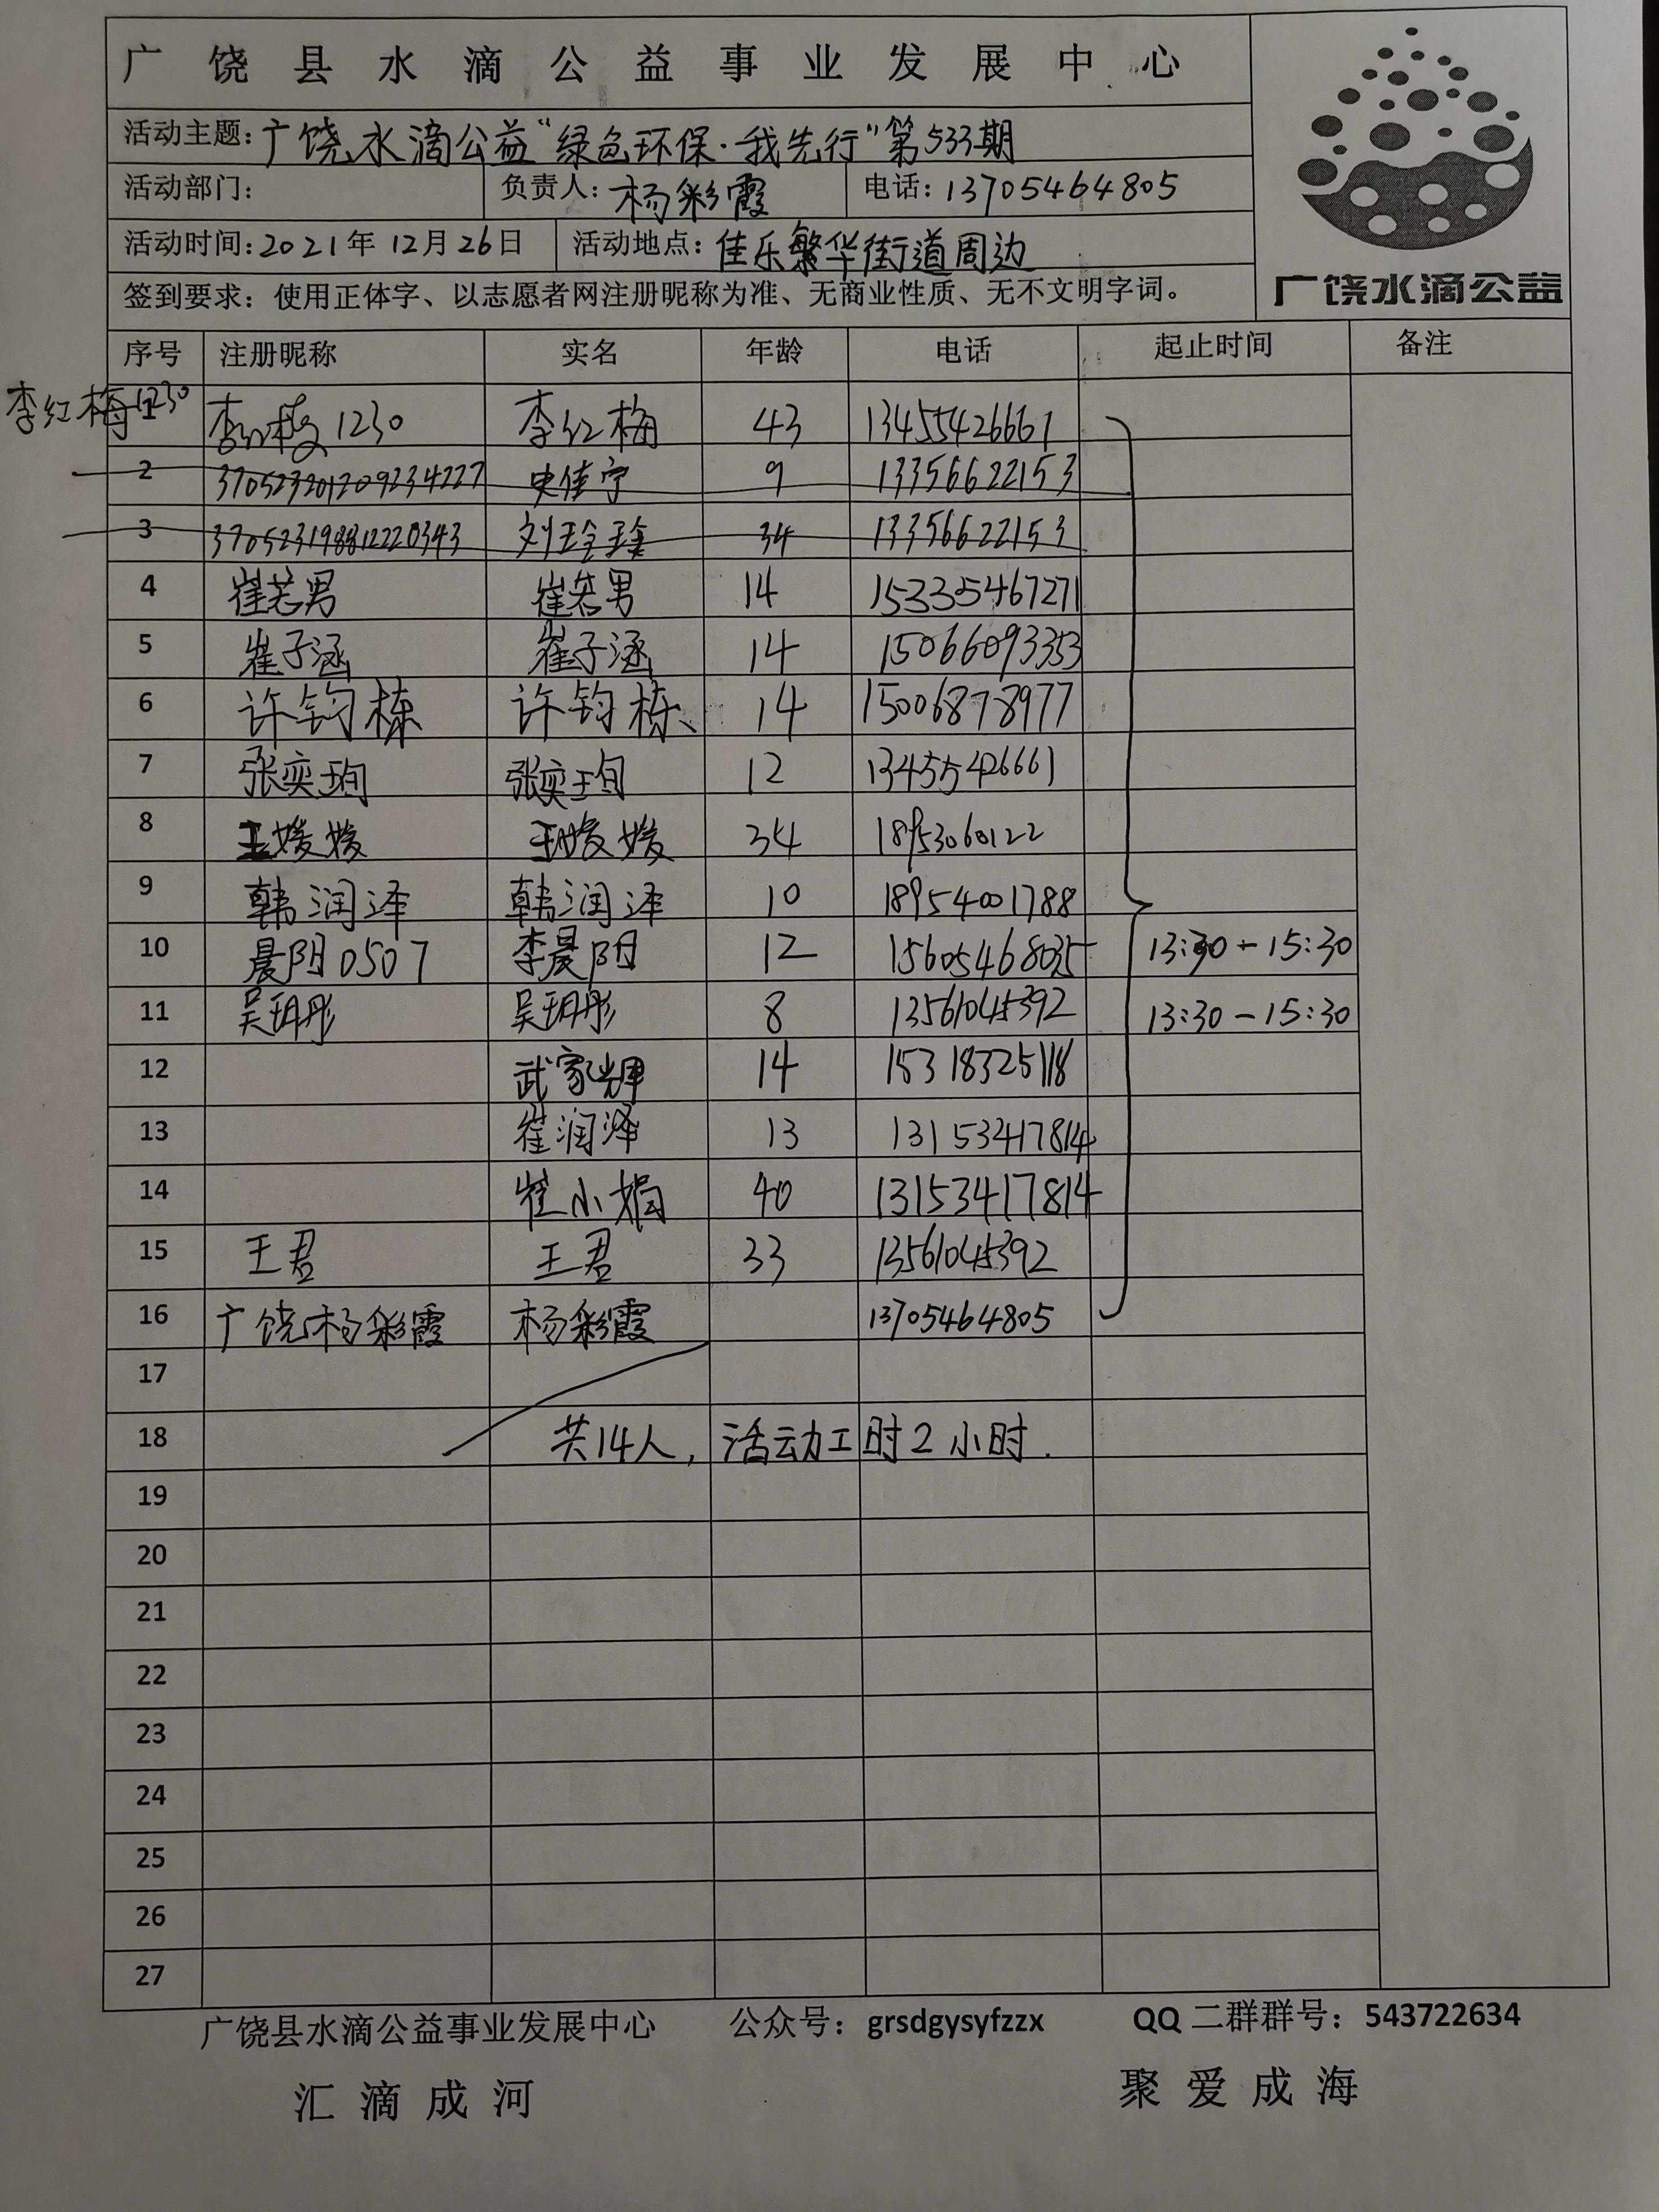 广饶县水滴公益事业发展中心
活动主题:广饶水滴公益“绿色环保·我先行”第533期
活动部门: 负责人:杨彩霞 电话:13705464805
活动时间:2021年12月26日 活动地点:佳乐繁华街道周边
签到要求：使用正体字、以志愿者网注册昵称为准、无商业性质、无不文明字词。
广饶水滴公益
序号 注册昵称 实名 年龄 电话 起止时间 备注
李红梅1230
1 李红梅1230 李红梅 43 13455426661
2 370523201209234227 史佳宁 9 13356622153
3 370523198812220343 刘玲玲 34 13356622153
4 崔若男 崔若男 14 15335467271
5 崔子涵 崔子涵 14 15066093353
6 许钧栋 许钧栋 14 15006878977
7 张奕珣 张奕珣 12 13455426661
8 王媛媛 王媛媛 34 18953060122
9 韩润泽 韩润泽 10 18954001788
10 晨阳0507 李晨阳 12 15605468035 13:30-15:30
11 吴玥彤 吴玥彤 8 13561045392 13:30-15:30
12 武家辉 14 15318325118
13 崔润泽 13 13153417814
14 崔小娟 40 13153417814
15 王君 王君 33 13561045392
16 广饶杨彩霞 杨彩霞 13705464805
17
18 共14人,活动工时2小时.
19
20
21
22
23
24
25
26
27
广饶县水滴公益事业发展中心 公众号：grsdgysyfzzx QQ二群群号：543722634
汇滴成河 聚爱成海